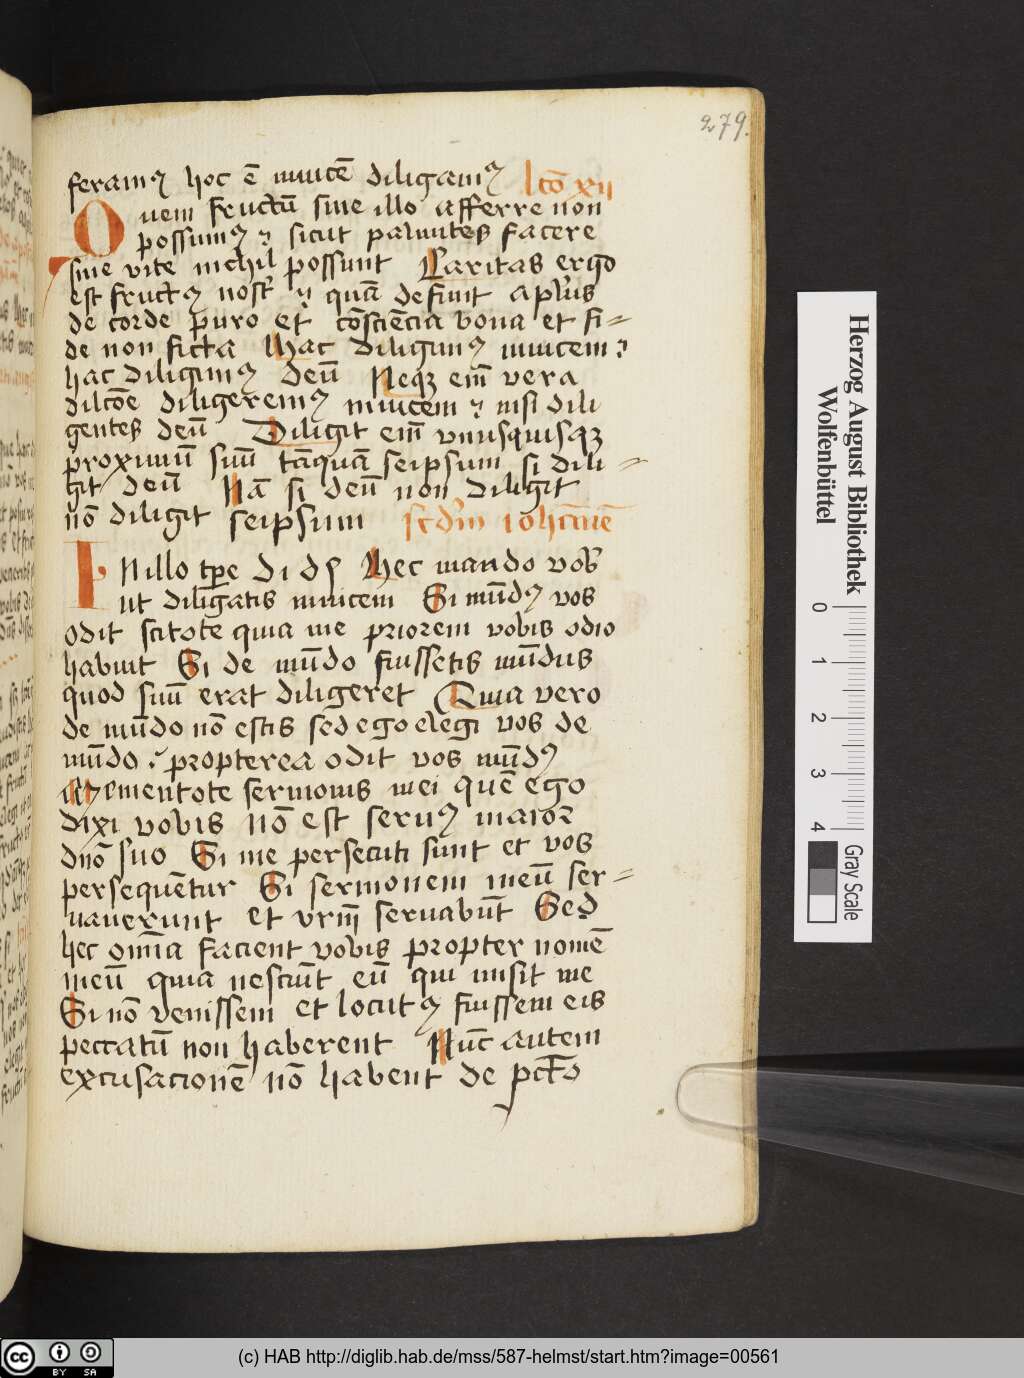 279.
feramꝰ hoc ē inuicē diligamꝰ lcō xii
Quem fructū sine illo afferre non
possumꝰ ⁊ sicut palmites facere
sine vite nichil possunt Caritas ergo
est fructꝰ nost᷒ ⁊ quā definit aplus
de corde puro et cōsciēcia bona et fi=
de non ficta Hac diligimꝰ inuicem ?
hac diligimꝰ deū Neqꝫ eīm vera
dilcōe diligeremꝰ inuicem ⁊ nisi dili
gentes deū Diligit eīm vnusquisqꝫ
proximū suū tāquā seipsum si dili=
git deū Nā si deū non diligit
nō diligit seipsum scdm iohannē
IN illo tpe di ds Hec mando vob
ut diligatis inuicem Si mūdꝰ vos
odit scitote quia me priorem vobis odio
habuit Si de mūdo fuissetis mūdus
quod suū erat diligeret Quia vero
de mūdo nō estis sed ego elegi vos de
mūdo ? propterea odit vos mūdꝰ
Mementote sermonis mei quē ego
dixi vobis nō est seruꝰ maior
dnō suo Si me persecuti sunt et vos
persequētur Si sermonem meū ser=
uauerunt et vrm̄ seruabūt Sed
hec omīa facient vobis propter nomē
meū quia nesciūt eū qui misit me
Si nō venissem et locutꝰ fuissem eis
peccatū non haberent Nūc autem
excusacionē nō habent de pcto
Herzog August Bibliothek
Wolfenbüttel
0 1 2 3 4
Gray Scale
cc BY SA
(c) HAB http://diglib.hab.de/mss/587-helmst/start.htm?image=00561